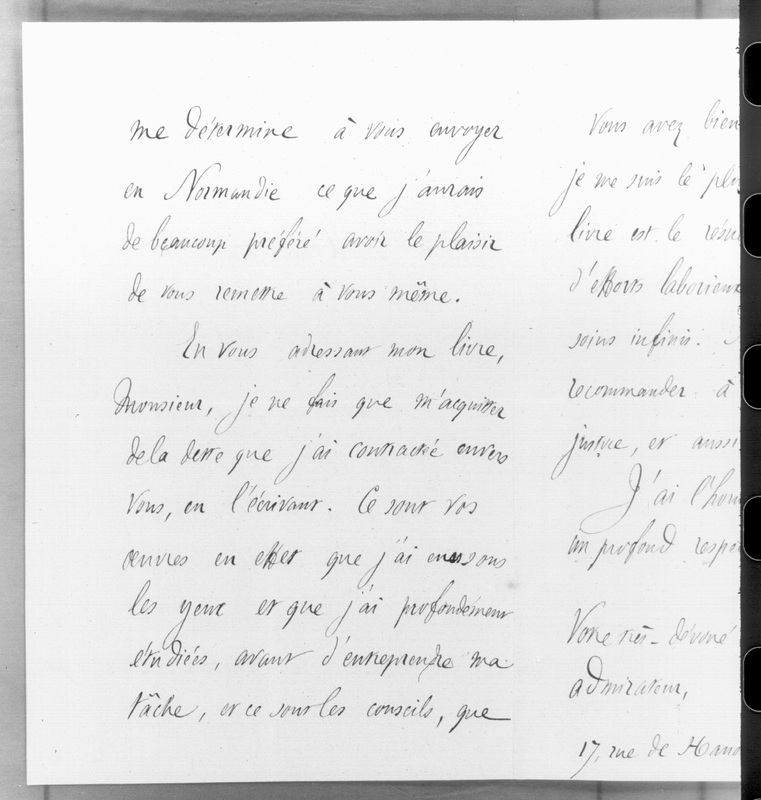 me détermine à vous envoyer
en Normandie ce que j'aurais
de beaucoup préféré avoir le plaisir
de vous remettre à vous même.
En vous adressant mon livre,
Monsieur, je ne fais que m'acquitter
de la dette que j'ai contractée envers
vous, en l'écrivant. Ce sont vos
œuvres en effet que j'ai eues sous
les yeux et que j'ai profondément
étudiées, avant d'entreprendre ma
tâche, et ce sont les conseils, que
Vous avez bien
je me suis le plu
livre est le résu
d'efforts laborieux
soins infinis.
recommander à
justice, et aussi
J'ai l'hon
un profond respe
Votre très-dévoué
admirateur,
17, rue de